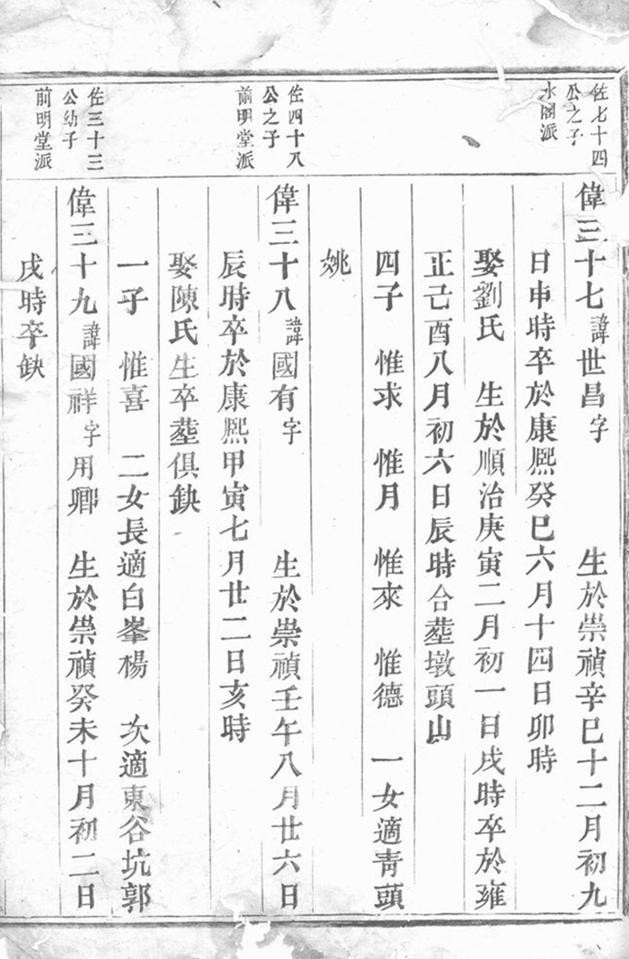 佐七十四
公之子
水閣派
偉三十七諱世昌字 生於崇禎辛巳十二月初九
日申時卒於康熙癸巳六月十四日卯時
娶劉氏 生於順治庚寅二月初一日戌時卒於雍
正己酉八月初六日辰時合塟墩頭山
四子 惟求 惟月 惟來 惟德 一女適靑頭
姚
佐四十八
公之子
前明堂派
偉三十八諱國有字 生於崇禎壬午八月廿六日
辰時卒於康熙甲寅七月廿二日亥時
娶陳氏生卒塟俱缺
一子 惟喜 二女長適白峯楊 次適東谷坑郭
佐三十三
公幼子
前明堂派
偉三十九諱國祥字用卿 生於崇禎癸未十月初二日
戌時卒缺